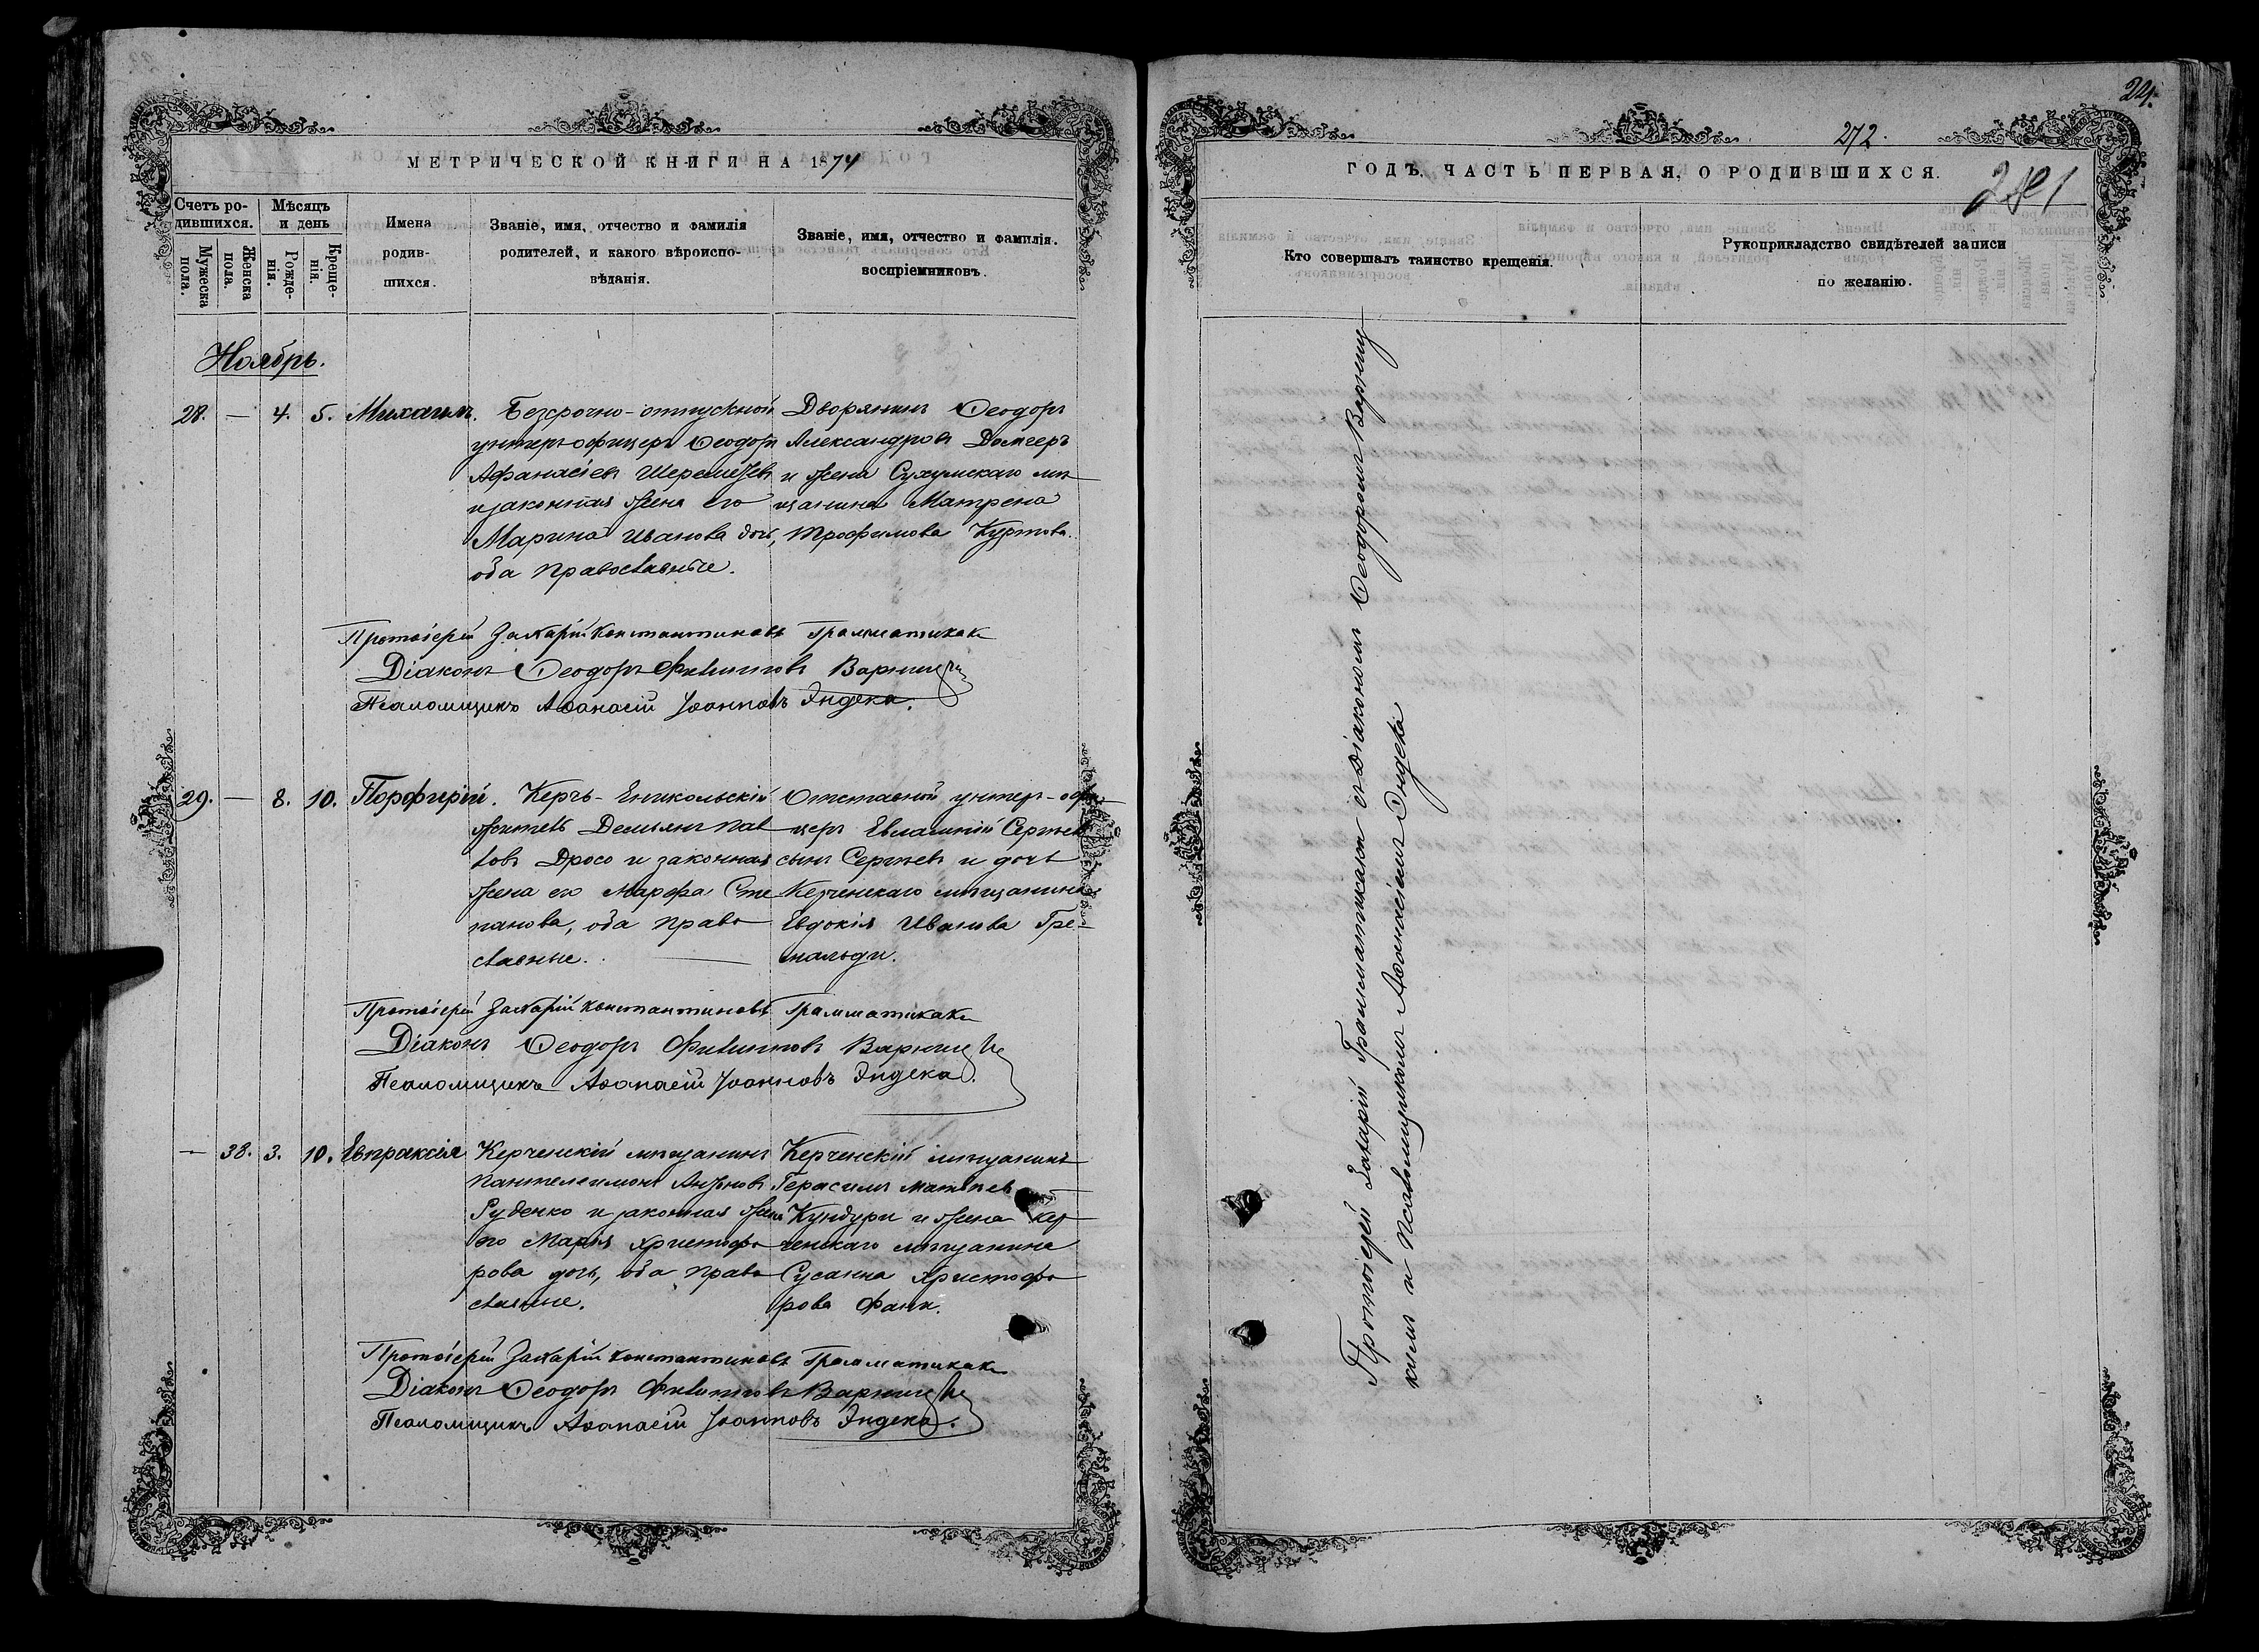 МЕТРИЧЕСКОЙ КНИГИ НА 1874
Счетъ ро-
дившихся.
Мужеска
пола.
Женска
пола.
Мѣсяцъ
и день
Рожде-
нія.
Креще-
нія.
Имена
родив-
шихся.
Званіе, имя, отчество и фамилія
родителей, и какого вѣроиспо-
вѣданія.
Званіе, имя, отчество и фамилія.
воспріемниковъ.
Ноябрь.
28. — 4. 5. Михаилъ.
Безсрочно-отпускной
унтеръ-офицеръ Ѳеодоръ
Афанасіевъ
и законная жена его
Марина Иванова дочь,
оба православные.
Дворянинъ Ѳеодоръ
Александровъ
и жена Сухумскаго мѣ
щанина Матрена
Трофимова Куртова.
Протоіерей Захарій Константиновъ Грамматикаки
Діаконъ Ѳеодоръ Филипповъ
Псаломщикъ Аѳанасій Іоанновъ Эндека.
29. — 8. 10. Порфирій.
Керчь-Еникольскій
житель Демьянъ Пав
ловъ Дросо и законная
жена его Марфа Сте
панова, оба право
славные.
Отставной унтер-офи
церъ Евлампій Сергѣев
сынъ Сергѣевъ и дочь
Керченскаго мѣщанина
Евдокія Иванова Гри-
мальди.
Протоіерей Захарій Константиновъ Грамматикаки
Діаконъ Ѳеодоръ Филипповъ
Псаломщикъ Аѳанасій Іоанновъ Эндека.
— 38. 3. 10. Евпраксія
Керченскій мѣщанинъ
Пантелеимонъ
Руденко и законная жена
его Марія Христофо
рова дочь, оба право
славные.
Керченскій мѣщанинъ
Герасимъ Матвѣев
Кундури и жена Кер
ченскаго мѣщанина
Сусанна Христофо
рова Фанк.
Протоіерей Захарій Константиновъ Грамматикаки
Діаконъ Ѳеодоръ Филипповъ
Псаломщикъ Аѳанасій Іоанновъ Эндека.
24.
272.
ГОДЪ, ЧАСТЬ ПЕРВАЯ, О РОДИВШИХСЯ.
Кто совершалъ таинство крещенія.
Рукоприкладство свидѣтелей записи
по желанію.
Протоіерей Захарій Грамматикаки съ Діакономъ Ѳеодоромъ
и Псаломщикомъ Аѳанасіемъ Эндека